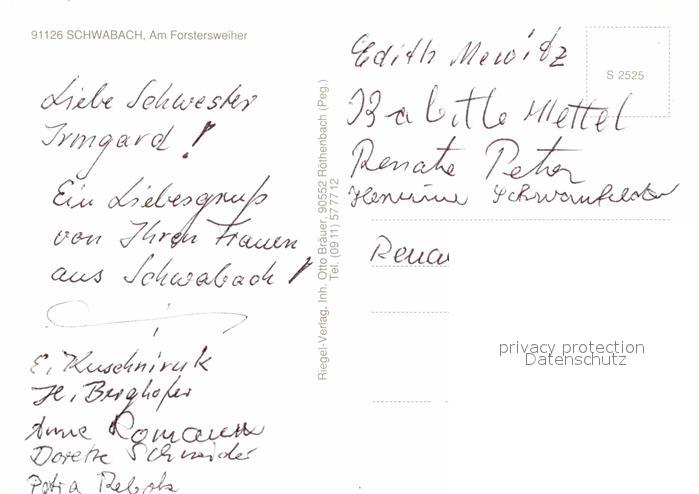 91126 SCHWABACH, Am Forstersweiher
Liebe Schwester
Irmgard !
Ein Liebesgruß
von Ihren Frauen
aus Schwabach !
E. Kuschniruk
H. Berghofer
Anne Romauer
Dorette Schneider
Petra
Riegel-Verlag, Inh. Otto Bräuer, 90552 Röthenbach (Peg.)
Tel. (09 11) 57 77 12
Edith Mewitz
Babitte Mettel
Renate Peter
S 2525
Renai
privacy protection
Datenschutz